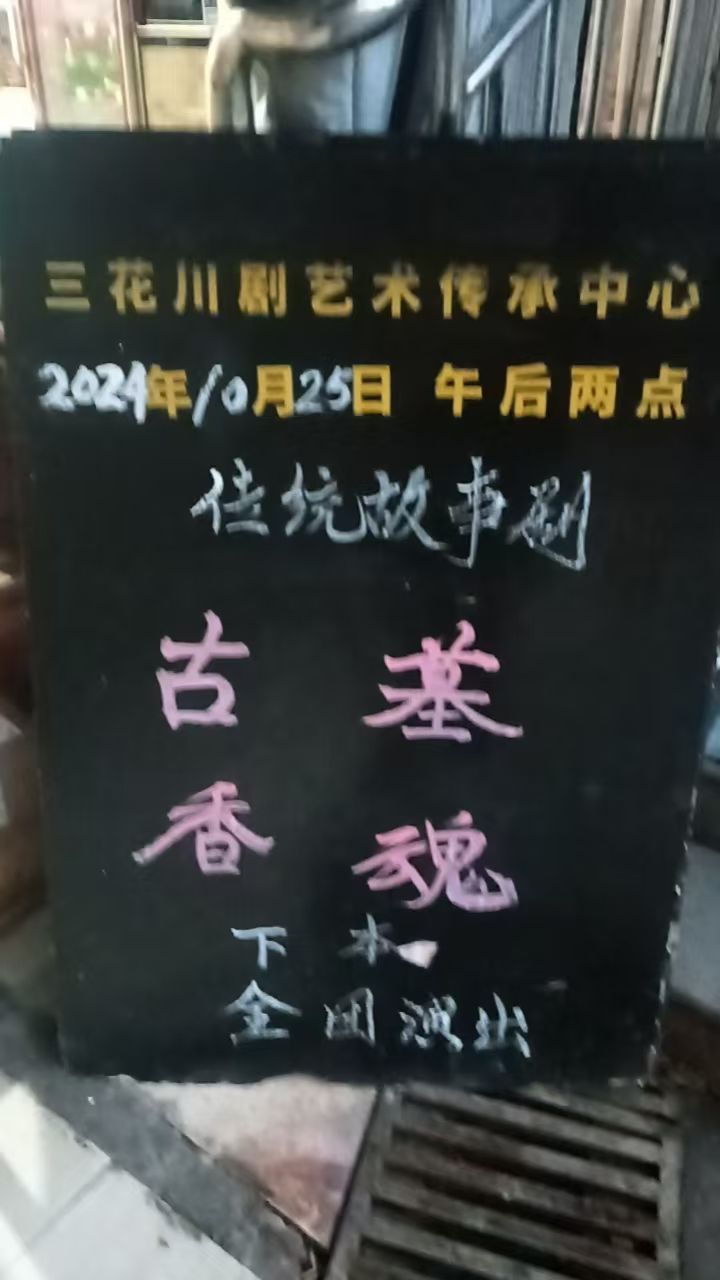 三花川剧艺术传承中心
2024年10月25日 午后两点
传统故事剧
古墓
香魂
下本
全团演出